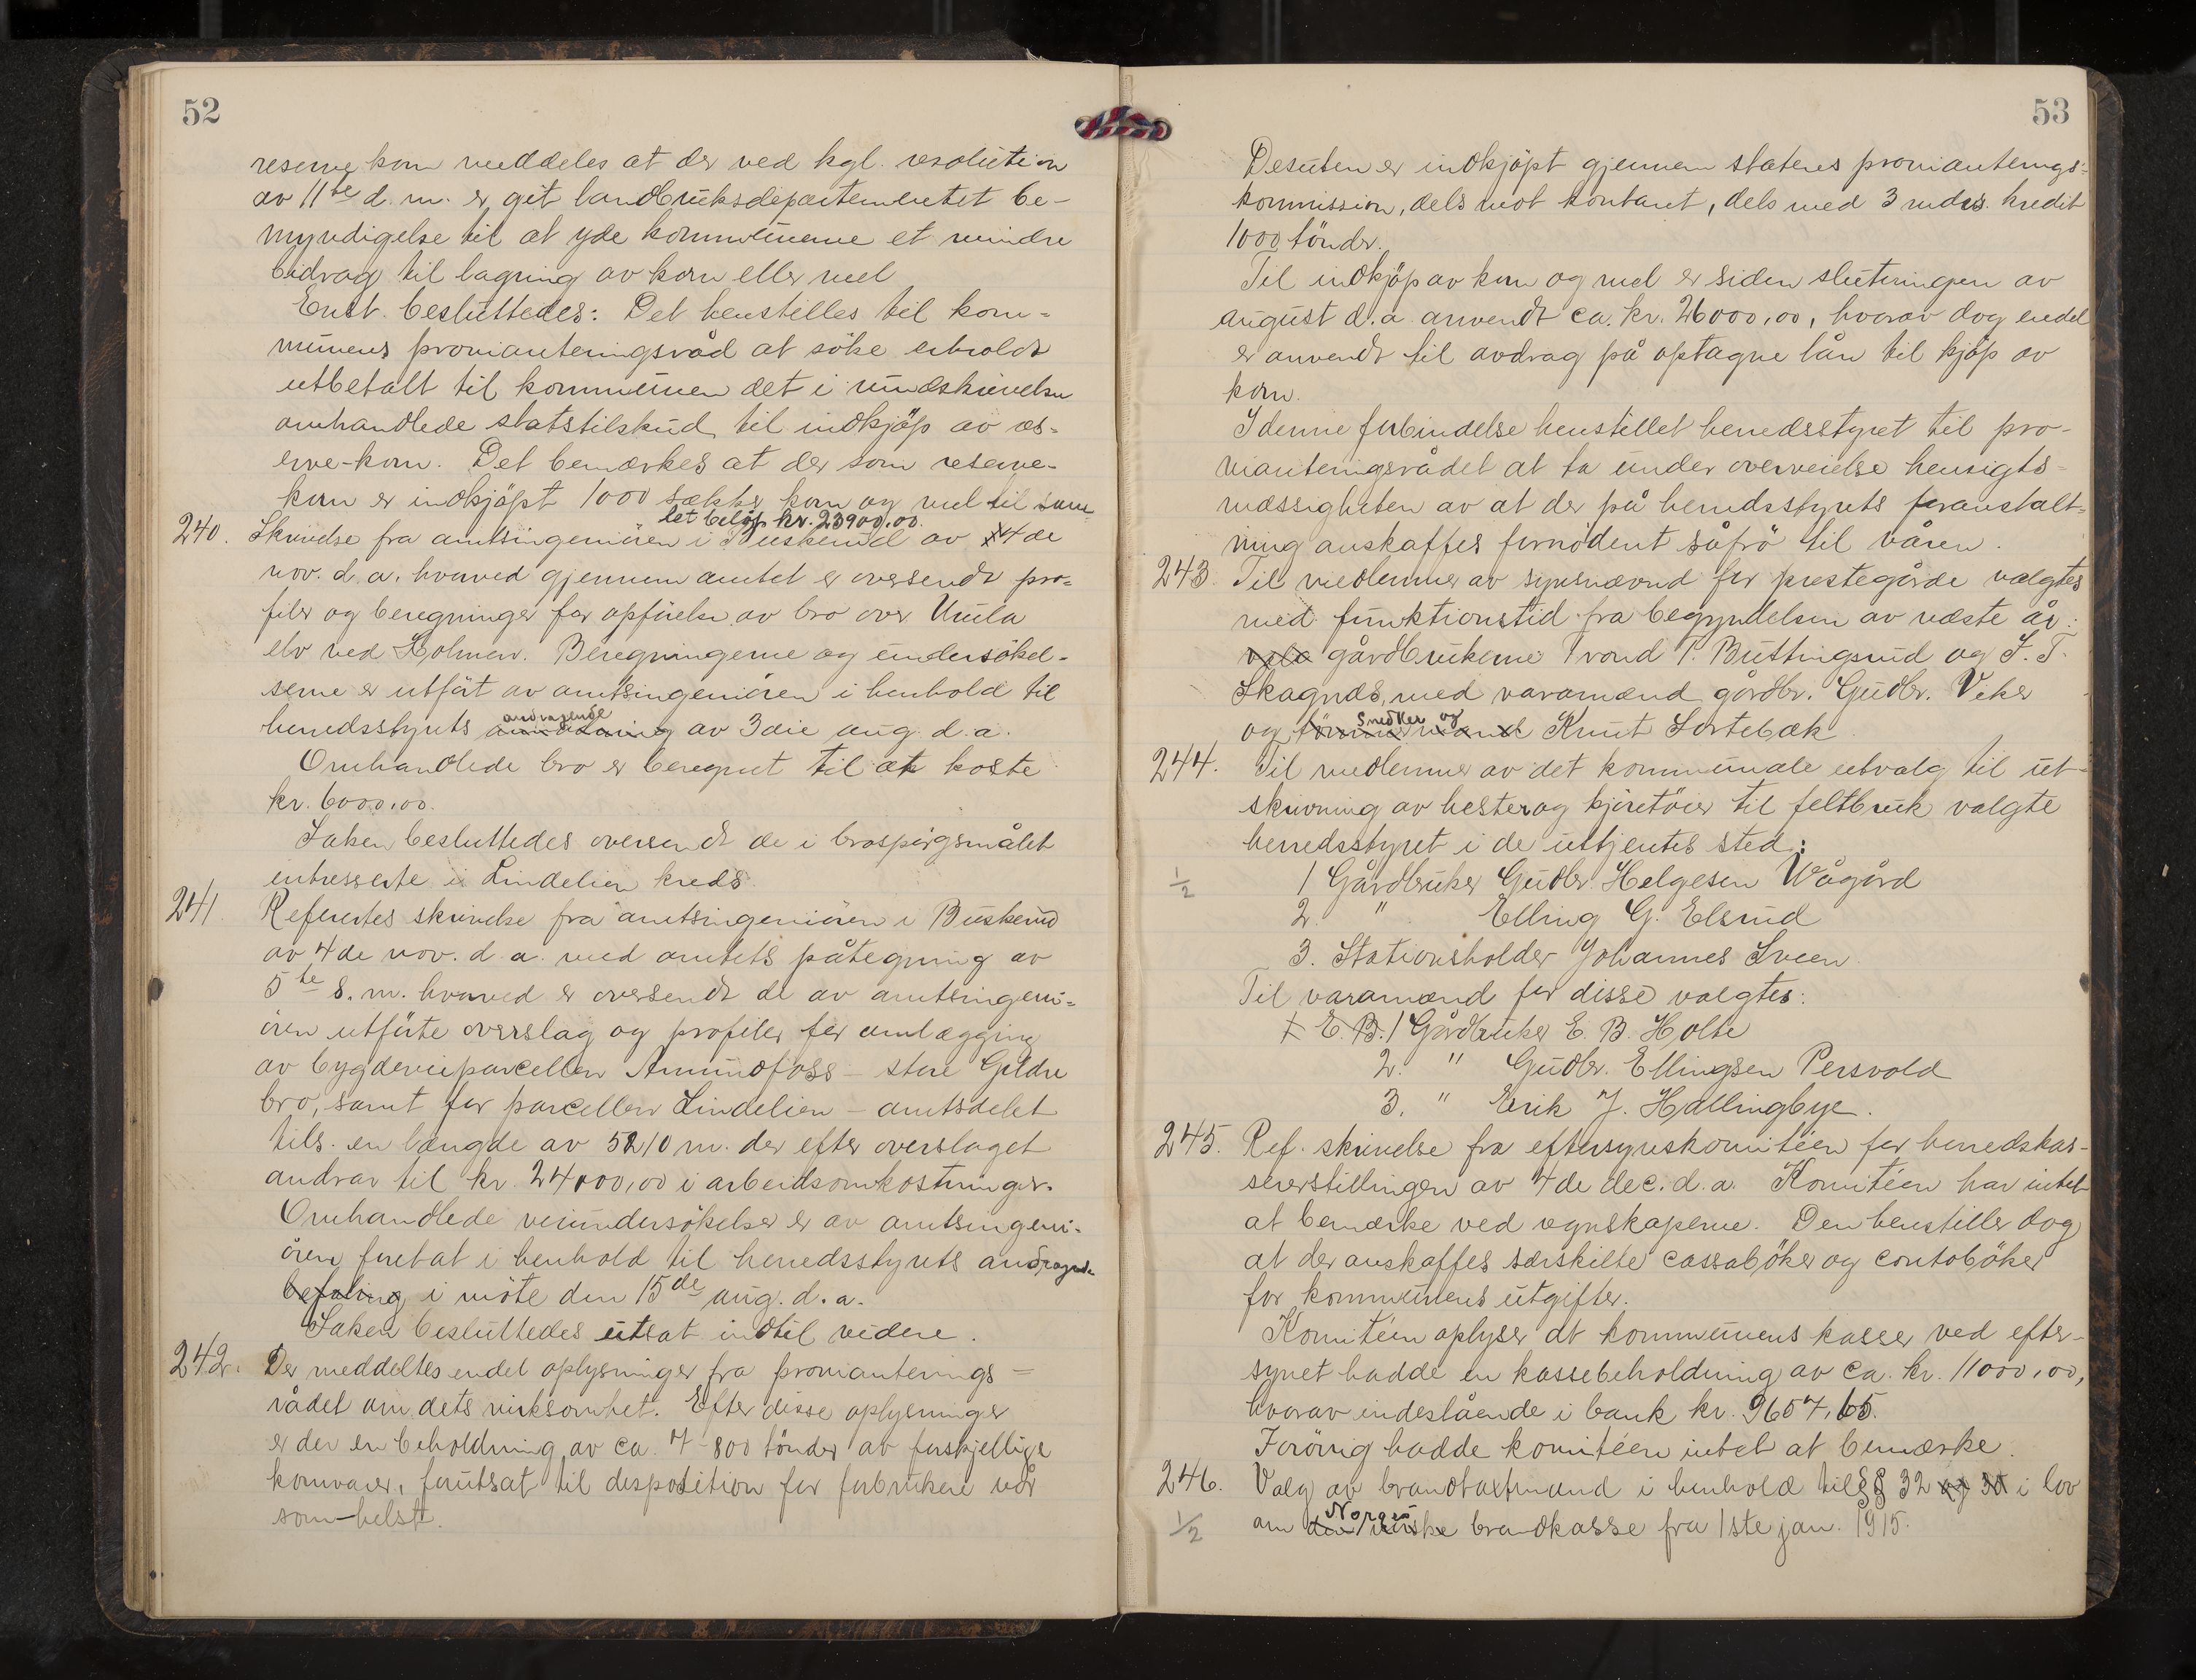 52
reservekorn meddeles at der ved kgl. resolution
av 11te d. m. er git landbruksdepartementet be-
myndigelse til at yde kommunerne et mindre
bidrag til lagring av korn eller mel
Enst. besluttedes: Det henstilles til kom-
munens provianteringsråd at söke erholdt
utbetalt til kommunen det i rundskrivelsen
omhandlede statstilskud til indkjöp av res-
erve-korn. Det bemærkes at der som reserve-
korn er indkjöpt 1000 sækker korn og mel til sam-
let belöp kr. 23900,00.
240. Skrivelse fra amtsingeniören i Buskerud av 4de
nov. d. a. hvorved gjennem amtet er oversendt pro-
filer og beregninger for opförelse av bro over Urula
elv ved Holmen. Beregningerne og undersökel-
serne er utfört av amtsingeniören i henhold til
herredsstyrets andragende av 3die aug. d. a.
Omhandlede bro er beregnet til at koste
kr. 6000,00.
Saken besluttedes oversendt de i brospörgsmålet
intresserte i Lindelien kreds.
241. Refertes skrivelse fra amtsingeniören i Buskerud
av 4de nov. d. a. med amtets påtegning av
5te s. m. hvorved er oversendt de av amtsingeni-
ören utförte overslag og profiler for omlægging
av bygdeveiparcellen Amundfoss - store Gjeldre
bro, samt for parcellen Lindelien - amtsdelet
tils. en længde av 5210 m. der efter overslaget
andrar til kr. 24000,00 i arbeidsomkostninger.
Omhandlede veiundersökelser er av amtsingeni-
ören foretat i henhold til herredsstyrets andragende
befaling i möte den 15de aug. d. a.
Saken besluttedes utsat indtil videre.
242. Der meddeltes endel oplysninger fra provianterings-
rådet om dets virksomhet. Efter disse oplysninger
er der en beholdning av ca. 7-800 tönder av forskjellige
kornvarer, forutsat til disposition for forbrukere når
som-helst.
53
Desuten er indkjöpt gjennem statens provianterings-
kommission, dels mot kontant, dels med 3 mdrs. kredit
1000 tönder.
Til indkjöp av korn og mel er siden slutningen av
august d. a. anvendt ca. kr. 26000,00, hvorav dog endel
er anvendt til avdrag på optagne lån til kjöp av
korn.
I denne forbindelse henstillet herredsstyret til pro-
vianteringsrådet at ta under overveielse hensigts-
mæssigheten av at der på herredsstyrets foranstalt-
ning anskaffes fornödent såfrö til våren.
243. Til medlemmer av synsnævnd for prestegårde valgtes
med funktionstid fra begyndelsen av næste år:
gårdbrukerne Trond P. Buttingsrud og T. T.
Skagnæs, med varamænd gårdbr. Gudbr. Veker
og snedker og Knut Sortebæk
244. Til medlemmer av det kommunale utvalg til ut-
skrivning av hester og kjöretöier til feltbruk valgte
herredsstyret i de uttjentes sted:
1/2
1 Gårdbruker Gudbr. Helgesen Wågård
2. " Elling G. Elsrud
3. Stationsholder Johannes Sveen
Til varamænd for disse valgtes:
1 E. B. 1 Gårdbruker E. B. Holte
2. " Gudbr. Ellingsen Persvold
3. " Erik J. Hallingbye.
245. Ref. skrivelse fra eftersynskomitéen for herredskas-
sererstillingen av 4de dec. d. a. Komitéen har intet
at bemærke ved regnskaperne. Den henstiller dog
at der anskaffes særskilte cassaböker og contoböker
for kommunens utgifter.
Komitéen oplyser at kommunens kasse ved efter-
synet hadde en kassebeholdning av ca. kr. 11000,00,
hvorav indestående i bank kr. 9657,65.
Forövrig hadde komitéen intet at bemærke.
246. Valg av brandtaxtmænd i henhold til §§ 32 og 30 i lov
1/2
om Norges brandkasse fra 1ste jan. 1915.